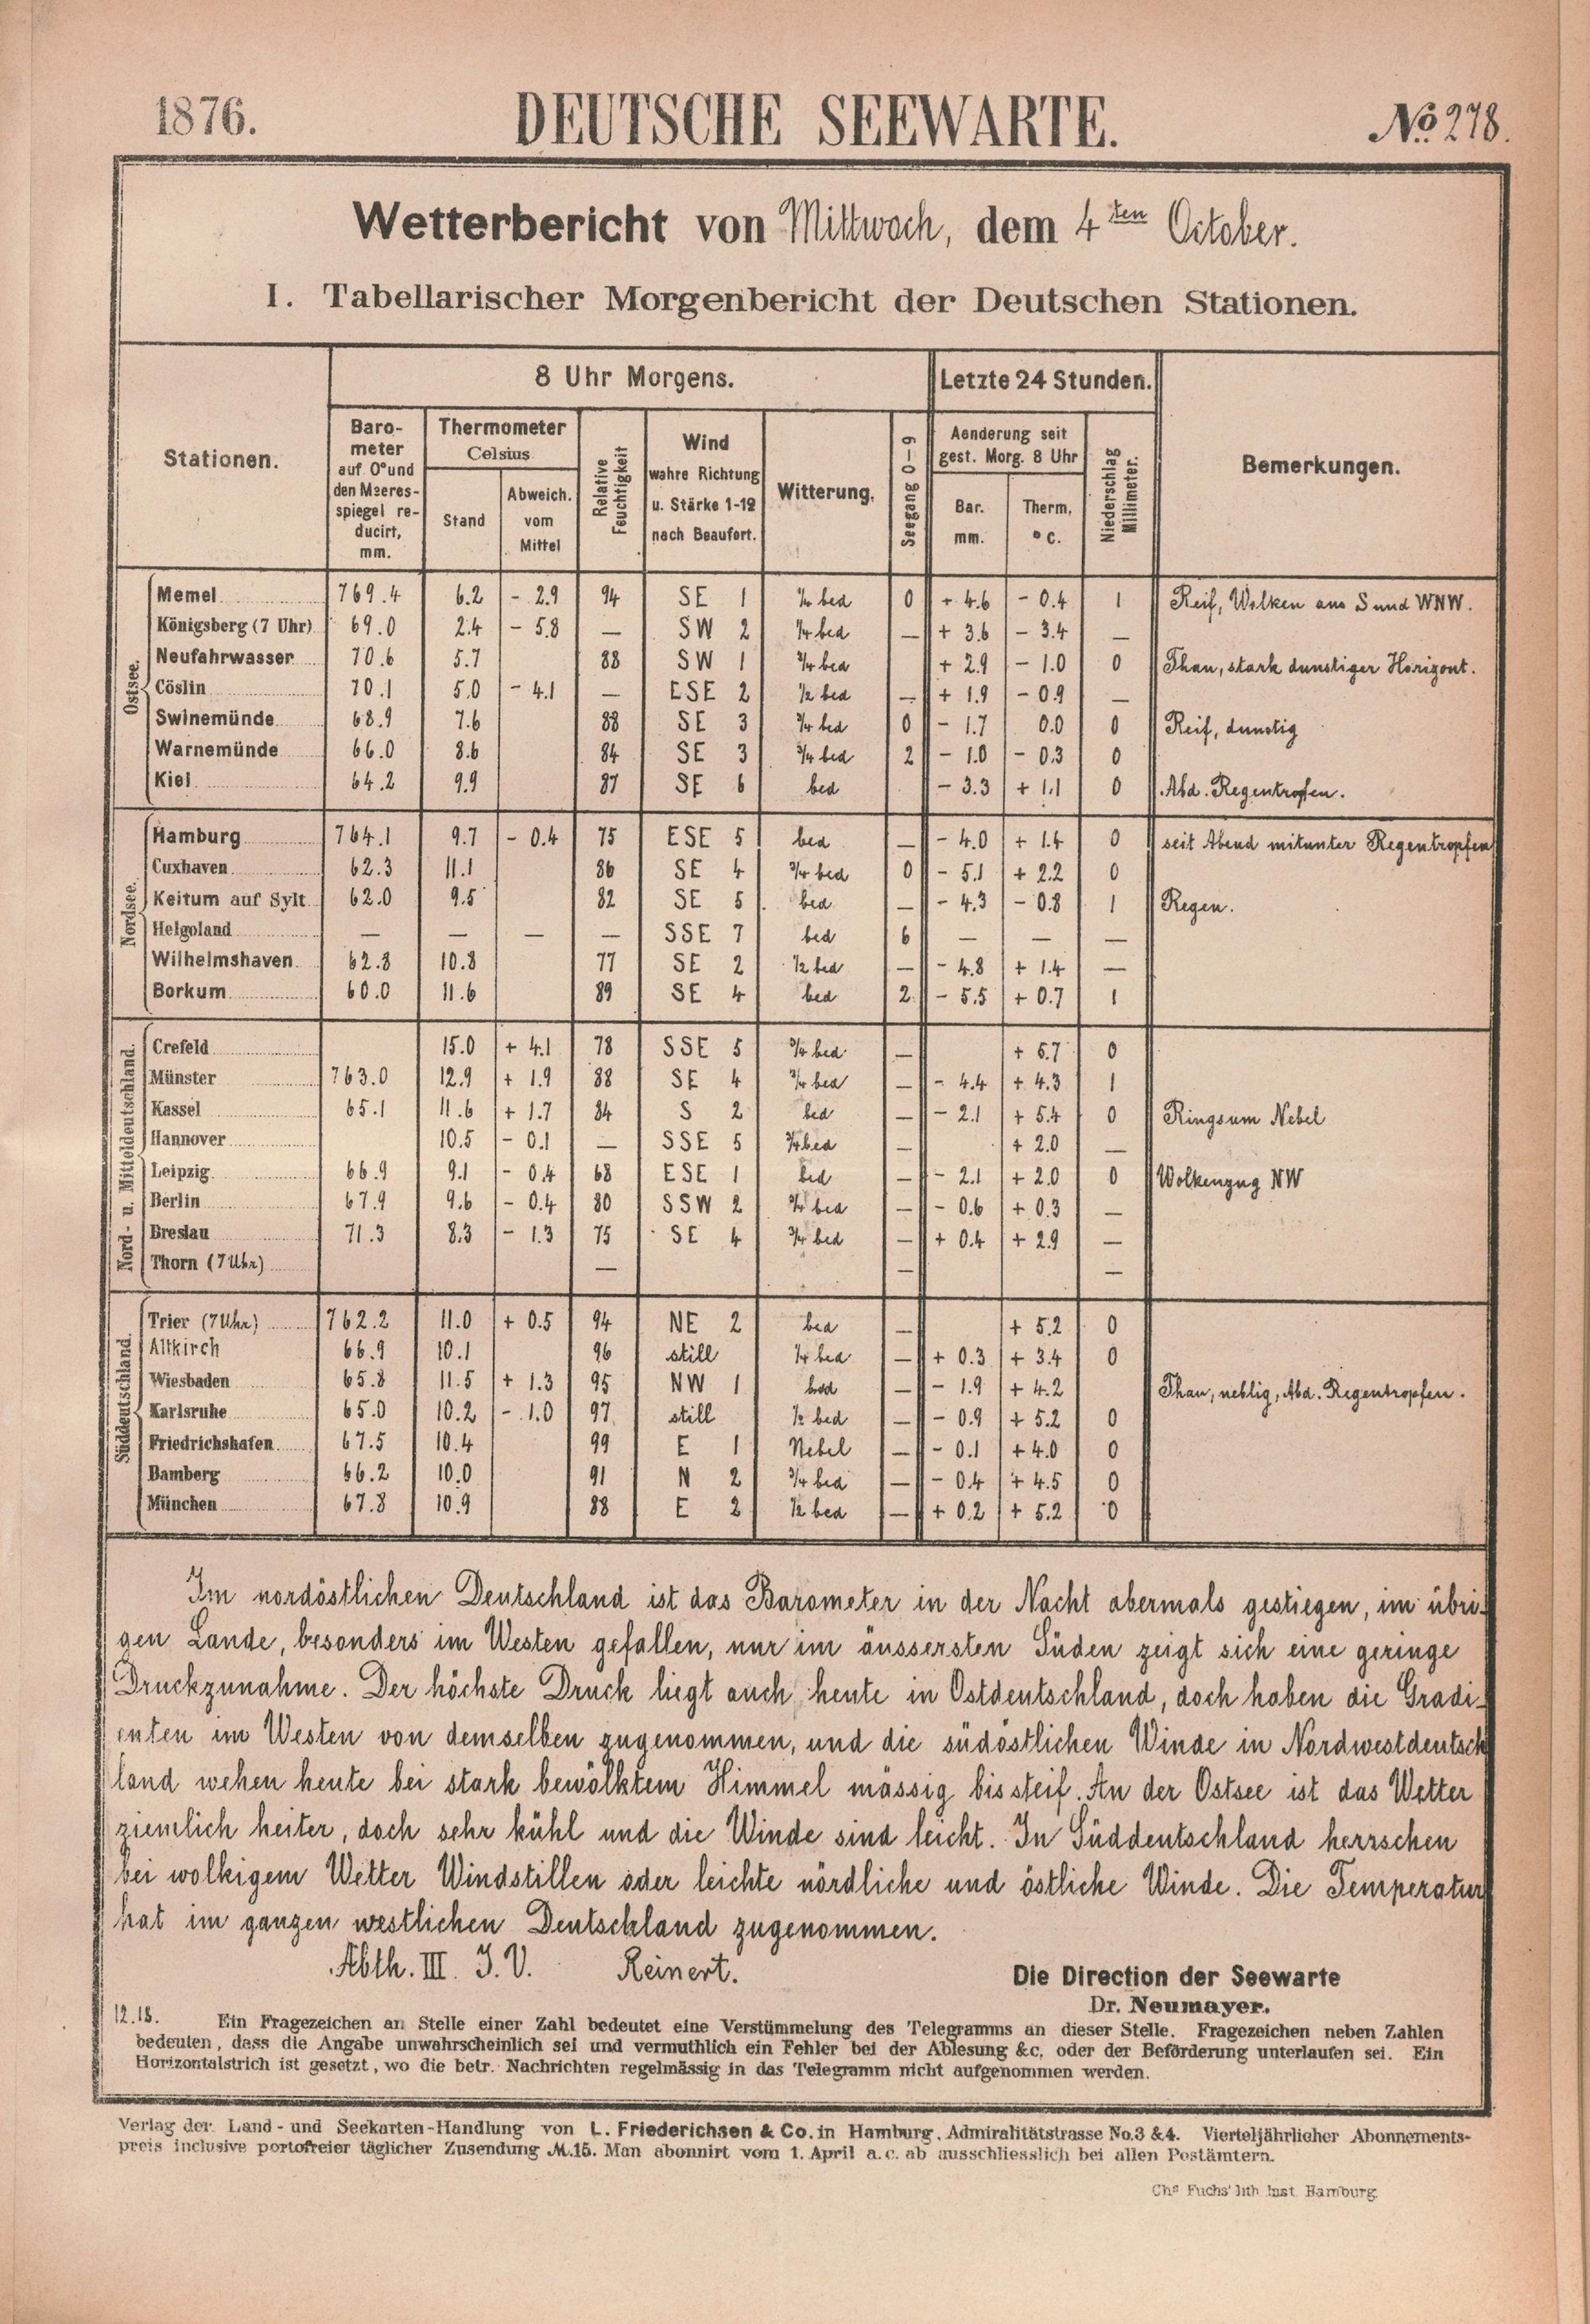 1876. DEUTSCHE SEEWARTE. No. 278.
Wetterbericht von Mittwoch, dem 4ten October.
I. Tabellarischer Morgenbericht der Deutschen Stationen.
8 Uhr Morgens. Letzte 24 Stunden.
Stationen. Barometer auf 0° und den Meeresspiegel reducirt, mm. Thermometer Celsius Stand Abweich. vom Mittel Relative Feuchtigkeit Wind wahre Richtung u. Stärke 1-12 nach Beaufort. Witterung. Seegang 0-9 Aenderung seit gest. Morg. 8 Uhr Bar. mm. Therm. ° C. Niederschlag Millimeter. Bemerkungen.
Ostsee.
Memel 769.4 6.2 - 2.9 94 SE 1 ¼ bed 0 + 4.6 - 0.4 1 Reif, Wolken aus S und WNW.
Königsberg (7 Uhr) 69.0 2.4 - 5.8 — SW 2 ¼ bed — + 3.6 - 3.4 —
Neufahrwasser 70.6 5.7 88 SW 1 ¾ bed + 2.9 - 1.0 0 Thau, stark dunstiger Horizont.
Cöslin 70.1 5.0 - 4.1 — ESE 2 ½ bed — + 1.9 - 0.9 —
Swinemünde 68.9 7.6 88 SE 3 ¾ bed 0 - 1.7 0.0 0 Reif, dunstig
Warnemünde 66.0 8.6 84 SE 3 ¾ bed 2 - 1.0 - 0.3 0
Kiel 64.2 9.9 87 SE 6 bed - 3.3 + 1.1 0 Abd. Regentropfen.
Nordsee.
Hamburg 764.1 9.7 - 0.4 75 ESE 5 bed — - 4.0 + 1.4 0 seit Abend mitunter Regentropfen
Cuxhaven 62.3 11.1 86 SE 4 ¾ bed 0 - 5.1 + 2.2 0
Keitum auf Sylt 62.0 9.5 82 SE 5 bed — - 4.3 - 0.8 1 Regen.
Helgoland — — — — SSE 7 bed 6 — — —
Wilhelmshaven 62.8 10.8 77 SE 2 ½ bed — - 4.8 + 1.4 —
Borkum 60.0 11.6 89 SE 4 bed 2 - 5.5 + 0.7 1
Nord- u. Mitteldeutschland.
Crefeld 15.0 + 4.1 78 SSE 5 ¾ bed — + 6.7 0
Münster 763.0 12.9 + 1.9 88 SE 4 ¾ bed — - 4.4 + 4.3 1
Kassel 65.1 11.6 + 1.7 84 S 2 bed — - 2.1 + 5.4 0 Ringsum Nebel
Hannover 10.5 - 0.1 — SSE 5 ¾ bed — + 2.0 —
Leipzig 66.9 9.1 - 0.4 68 ESE 1 bed — - 2.1 + 2.0 0 Wolkenzug NW
Berlin 67.9 9.6 - 0.4 80 SSW 2 ¾ bed — - 0.6 + 0.3 —
Breslau 71.3 8.3 - 1.3 75 SE 4 ¾ bed — + 0.4 + 2.9 —
Thorn (7 Uhr) — — —
Süddeutschland.
Trier (7 Uhr) 762.2 11.0 + 0.5 94 NE 2 bed — + 5.2 0
Altkirch 66.9 10.1 96 still ¼ bed — + 0.3 + 3.4 0
Wiesbaden 65.8 11.5 + 1.3 95 NW 1 bed — - 1.9 + 4.2 Thau, neblig, Abd. Regentropfen.
Karlsruhe 65.0 10.2 - 1.0 97 still ½ bed — - 0.9 + 5.2 0
Friedrichshafen 67.5 10.4 99 E 1 Nebel — - 0.1 + 4.0 0
Bamberg 66.2 10.0 91 N 2 ¾ bed — - 0.4 + 4.5 0
München 67.8 10.9 88 E 2 ½ bed — + 0.2 + 5.2 0
Im nordöstlichen Deutschland ist das Barometer in der Nacht abermals gestiegen, im übri-
gen Lande, besonders im Westen gefallen, nur im äussersten Süden zeigt sich eine geringe
Druckzunahme. Der höchste Druck liegt auch heute in Ostdeutschland, doch haben die Gradi-
enten im Westen von demselben zugenommen, und die südöstlichen Winde in Nordwestdeutsch
land wehen heute bei stark bewölktem Himmel mässig bis steif. An der Ostsee ist das Wetter
ziemlich heiter, doch sehr kühl und die Winde sind leicht. In Süddeutschland herrschen
bei wolkigem Wetter Windstillen oder leichte nördliche und östliche Winde. Die Temperatur
hat im ganzen westlichen Deutschland zugenommen.
Abth. III. I. V. Reinert.
Die Direction der Seewarte
Dr. Neumayer.
12.18. Ein Fragezeichen an Stelle einer Zahl bedeutet eine Verstümmelung des Telegramms an dieser Stelle. Fragezeichen neben Zahlen
bedeuten, dass die Angabe unwahrscheinlich sei und vermuthlich ein Fehler bei der Ablesung &c. oder der Beförderung unterlaufen sei. Ein
Horizontalstrich ist gesetzt, wo die betr. Nachrichten regelmässig in das Telegramm nicht aufgenommen werden.
Verlag der Land- und Seekarten-Handlung von L. Friederichsen & Co. in Hamburg. Admiralitätstrasse No. 3 & 4. Vierteljährlicher Abonnements-
preis inclusive portofreier täglicher Zusendung M. 15. Man abonnirt vom 1. April a. c. ab ausschliesslich bei allen Postämtern.
Chs Fuchs' lith. Inst. Hamburg.